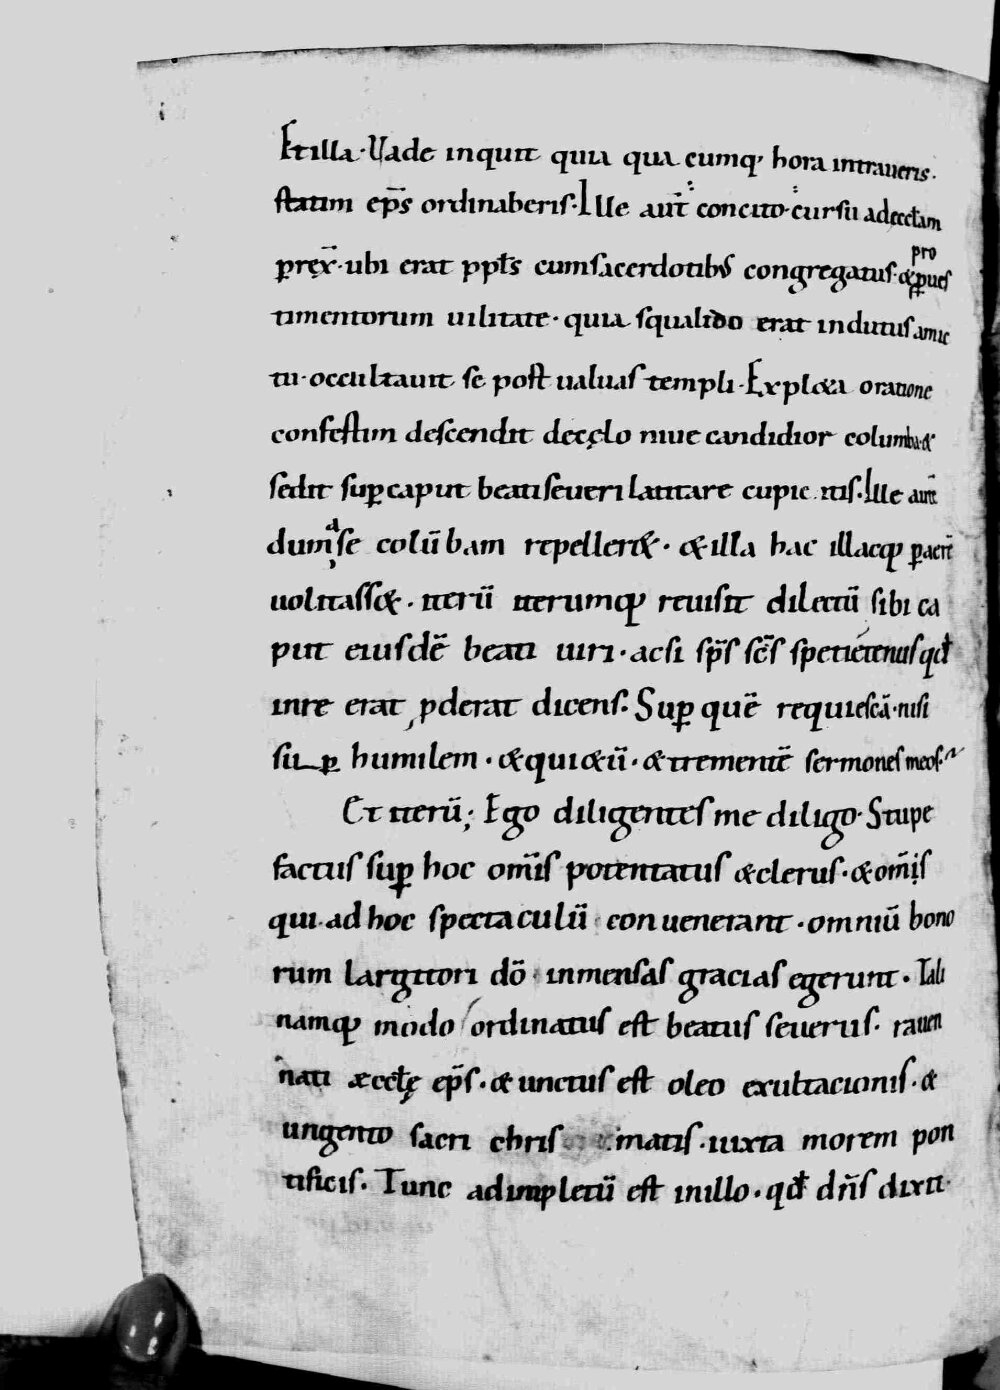 Et illa · Uade inquit quia qua cumq; hora intraueris ·
statim ep̅s ordinaberis · Ille aut̅ concito · cursu ad eccłam
prex̅ · ubi erat ppls̅ cum sacerdotib; congregatus · & pro p̱ ues
timentorum uilitate · quia squalido erat indutus amic
tu · occultauit se post ualuas templi · Expl&a oratione
confestim descendit de cęlo niue candidior columba · &
sedit sup̱ caput beati seueri latitare cupientis · Ille aut̅
dum a se colu̅bam repeller& · & illa hac illacq; p̱ aere̅
uolitass& · iteru̅ iterumq; reuisit dilectu̅ sibi ca
put eiusde̅ beati uiri · acsi sp̅s sc̅s specietenus qđ
in re erat, p̱derat dicens · Sup̱ que̅ requiesca̅ · nisi
sup̱ humilem · & qui&u̅ · & tremente̅ sermones meos ·
Et iteru̅; Ego diligentes me diligo · Stupe
factus sup̱ hoc om̅is potentatus & clerus · & om̅is
qui · ad hoc spectaculu̅ conuenerant · omniu̅ bono
rum largitori do̅ inmensas gracias egerunt · Tali
namq; modo ordinatus est beatus seuerus · rauen
nati æccłę ep̅s · & unctus est oleo exultacionis · &
ungento sacri chrismatis · iuxta morem pon
tificis · Tunc adimpletu̅ est in illo · qđ dn̅s dixit ·